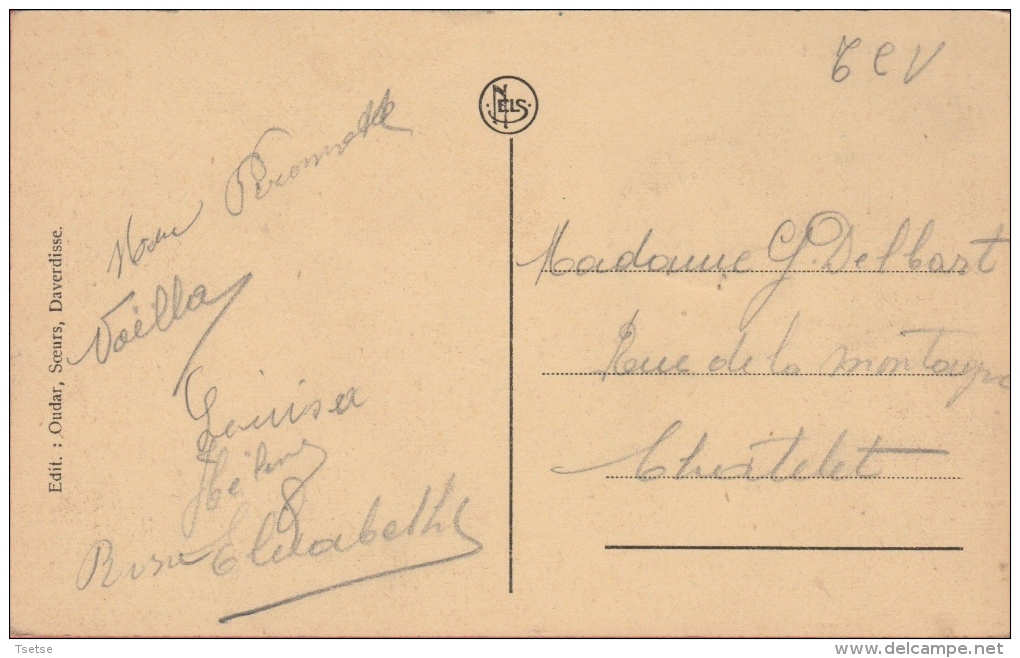 T C V
NELS
Edit. : Oudar, Sœurs, Daverdisse.
Peronnelle
Noëlla
Louisa
Hélène
Rosa Elisabeth
Madame G. Delbart
Rue de la montagne
Chatelet
Tsetse
delcampe.net